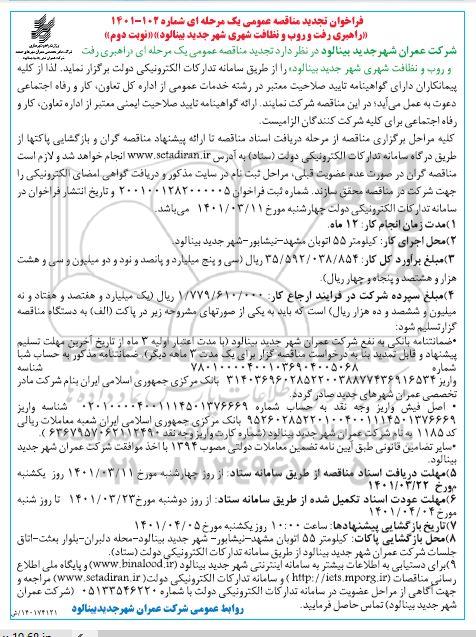 فراخوان تجدید مناقصه عمومی یک مرحله ای شماره ۱۰۲-۱۴۰۱
«راهبری رفت و روب و نظافت شهری شهر جدید بینالود»«نوبت دوم»
شرکت عمران شهرجدید بینالود در نظر دارد تجدید مناقصه عمومی یک مرحله ای «راهبری رفت
و روب و نظافت شهری شهر جدید بینالود» را از طریق سامانه تدارکات الکترونیکی دولت برگزار نماید. لذا از کلیه
پیمانکاران دارای گواهینامه تایید صلاحیت معتبر در رشته خدمات عمومی از اداره کل تعاون، کار و رفاه اجتماعی
دعوت به عمل می‌آید؛ در این مناقصه شرکت نمایند. ارائه گواهینامه تایید صلاحیت ایمنی معتبر از اداره تعاون، کار و
رفاه اجتماعی برای کلیه شرکت کنندگان الزامیست.
کلیه مراحل برگزاری مناقصه از مرحله دریافت اسناد مناقصه تا ارائه پیشنهاد مناقصه گران و بازگشایی پاکتها از
طریق درگاه سامانه تدارکات الکترونیکی دولت (ستاد) به آدرس www.setadiran.ir انجام خواهد شد و لازم است
مناقصه گران در صورت عدم عضویت قبلی، مراحل ثبت نام در سایت مذکور و دریافت گواهی امضای الکترونیکی را
جهت شرکت در مناقصه محقق سازند. شماره ثبت فراخوان ۲۰۰۱۰۰۱۲۸۲۰۰۰۰۰۵ و تاریخ انتشار فراخوان در
سامانه تدارکات الکترونیکی دولت چهارشنبه مورخ ۱۴۰۱/۰۳/۱۱ می‌باشد.
۱)مدت زمان انجام کار: ۱۲ ماه.
۲)محل اجرای کار: کیلومتر ۵۵ اتوبان مشهد-نیشابور-شهر جدید بینالود.
۳)مبلغ برآورد کل کار: ۳۵/۵۹۲/۰۳۸/۸۵۴ ریال (سی و پنج میلیارد و پانصد و نود و دو میلیون و سی و هشت
هزار و هشتصد و پنجاه و چهار ریال).
۴)مبلغ سپرده شرکت در فرایند ارجاع کار: ۱/۷۷۹/۶۱۰/۰۰۰ ریال (یک میلیارد و هفتصد و هفتاد و نه
میلیون و ششصد و ده هزار ریال) است که باید به یکی از صورتهای مشروحه زیر در پاکت (الف) به دستگاه مناقصه
گزار تسلیم شود:
•ضمانتنامه بانکی به نفع شرکت عمران شهر جدید بینالود (با مدت اعتبار اولیه ۳ ماه از تاریخ آخرین مهلت تسلیم
پیشنهاد و قابل تمدید بنا به درخواست مناقصه گزار برای یک مدت ۳ ماهه دیگر). ضمانتنامه مذکور به حساب شبا
شماره شناسه
واریز بانک مرکزی جمهوری اسلامی ایران بنام شرکت مادر
تخصصی عمران شهرهای جدید صادر گردد.
• اصل فیش واریز وجه نقد به حساب شماره شناسه واریز
بانک مرکزی جمهوری اسلامی ایران شعبه معاملات ریالی
کد ۱۱۸۵ به نام شرکت عمران شهر جدید بینالود (شماره کارت واریز وجه نقد ).
•سایر تضامین قانونی طبق آیین نامه تضمین معاملات دولتی مصوب ۱۳۹۴ با اخذ موافقت شرکت عمران شهر جدید
بینالود.
۵)مهلت دریافت اسناد مناقصه از طریق سامانه ستاد: از روز چهارشنبه مورخ ۱۴۰۱/۰۳/۱۱ روز یکشنبه
مورخ ۱۴۰۱/۰۳/۲۲
۶)مهلت عودت اسناد تکمیل شده از طریق سامانه ستاد: از روز دوشنبه مورخ۱۴۰۱/۰۳/۲۳ تا روز شنبه
مورخ ۱۴۰۱/۰۴/۰۴
۷)تاریخ بازگشایی پیشنهادها: ساعت ۱۰:۰۰ روز یکشنبه مورخ ۱۴۰۱/۰۴/۰۵
۸)محل بازگشایی پاکات: کیلومتر ۵۵ اتوبان مشهد-نیشابور- شهر جدید بینالود-محله دلبران-بلوار بعثت-اتاق
جلسات شرکت عمران شهر جدید بینالود از طریق سامانه تدارکات الکترونیکی دولت (ستاد).
۹)برای دستیابی به اطلاعات بیشتر به سامانه اینترنتی شهر جدید بینالود (www.binalood.ir) و پایگاه ملی اطلاع
رسانی مناقصات (http://iets.mporg.ir) و سامانه تدارکات الکترونیکی دولت( www.setadiran.ir) مراجعه و
جهت آگاهی از مراحل عضویت در سامانه تدارکات الکترونیکی دولت با شماره ۰۵۱۳۳۵۴۶۲۲۰ (شرکت عمران
شهر جدید بینالود) تماس حاصل فرمایید.
روابط عمومی شرکت عمران شهرجدیدبینالود
۱۴۰۱۷۴۱۲۱/ش